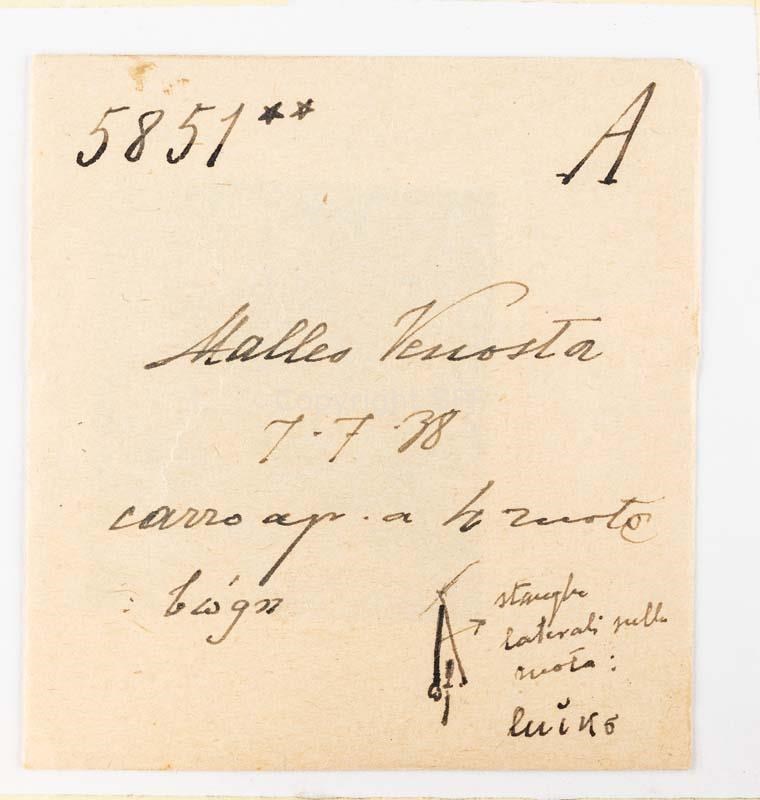 5851** A
Malles Venosta
7.7.38
carro ap. a 4 ruote
: biógn
stanghe
laterali sulla
ruota: